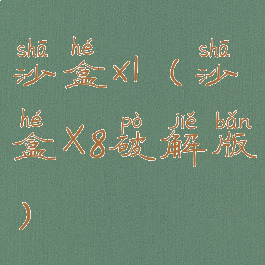 shā hé shā
沙盒x1(沙
hé pò jiě bǎn
盒X8破解版
)